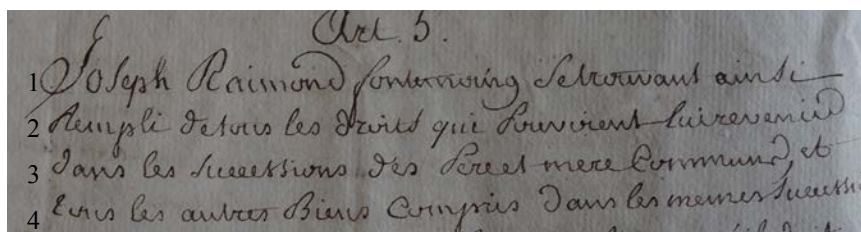 Art. 5.
1 Joseph Raimond fontenoing Setrouvant ainsi
2 Rempli detous les droits qui Pouvoient luirevenir
3 dans les Successions des Pere et mere Communs, et
4 tous les autres Biens Compris dans les memes Successi